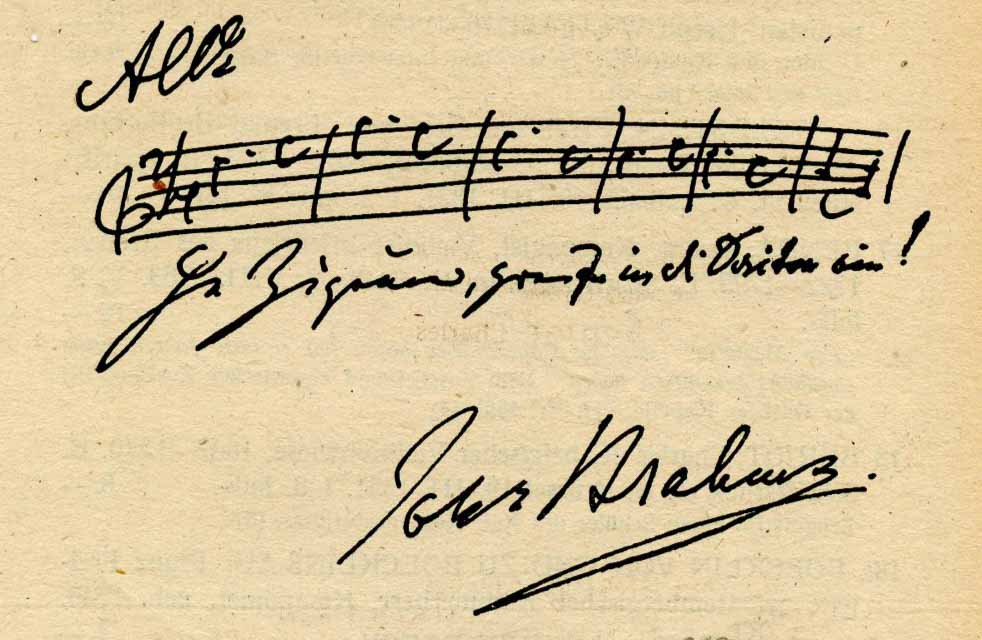 Allo
He Zigeuner, greife in die Saiten ein!
Johs Brahms.